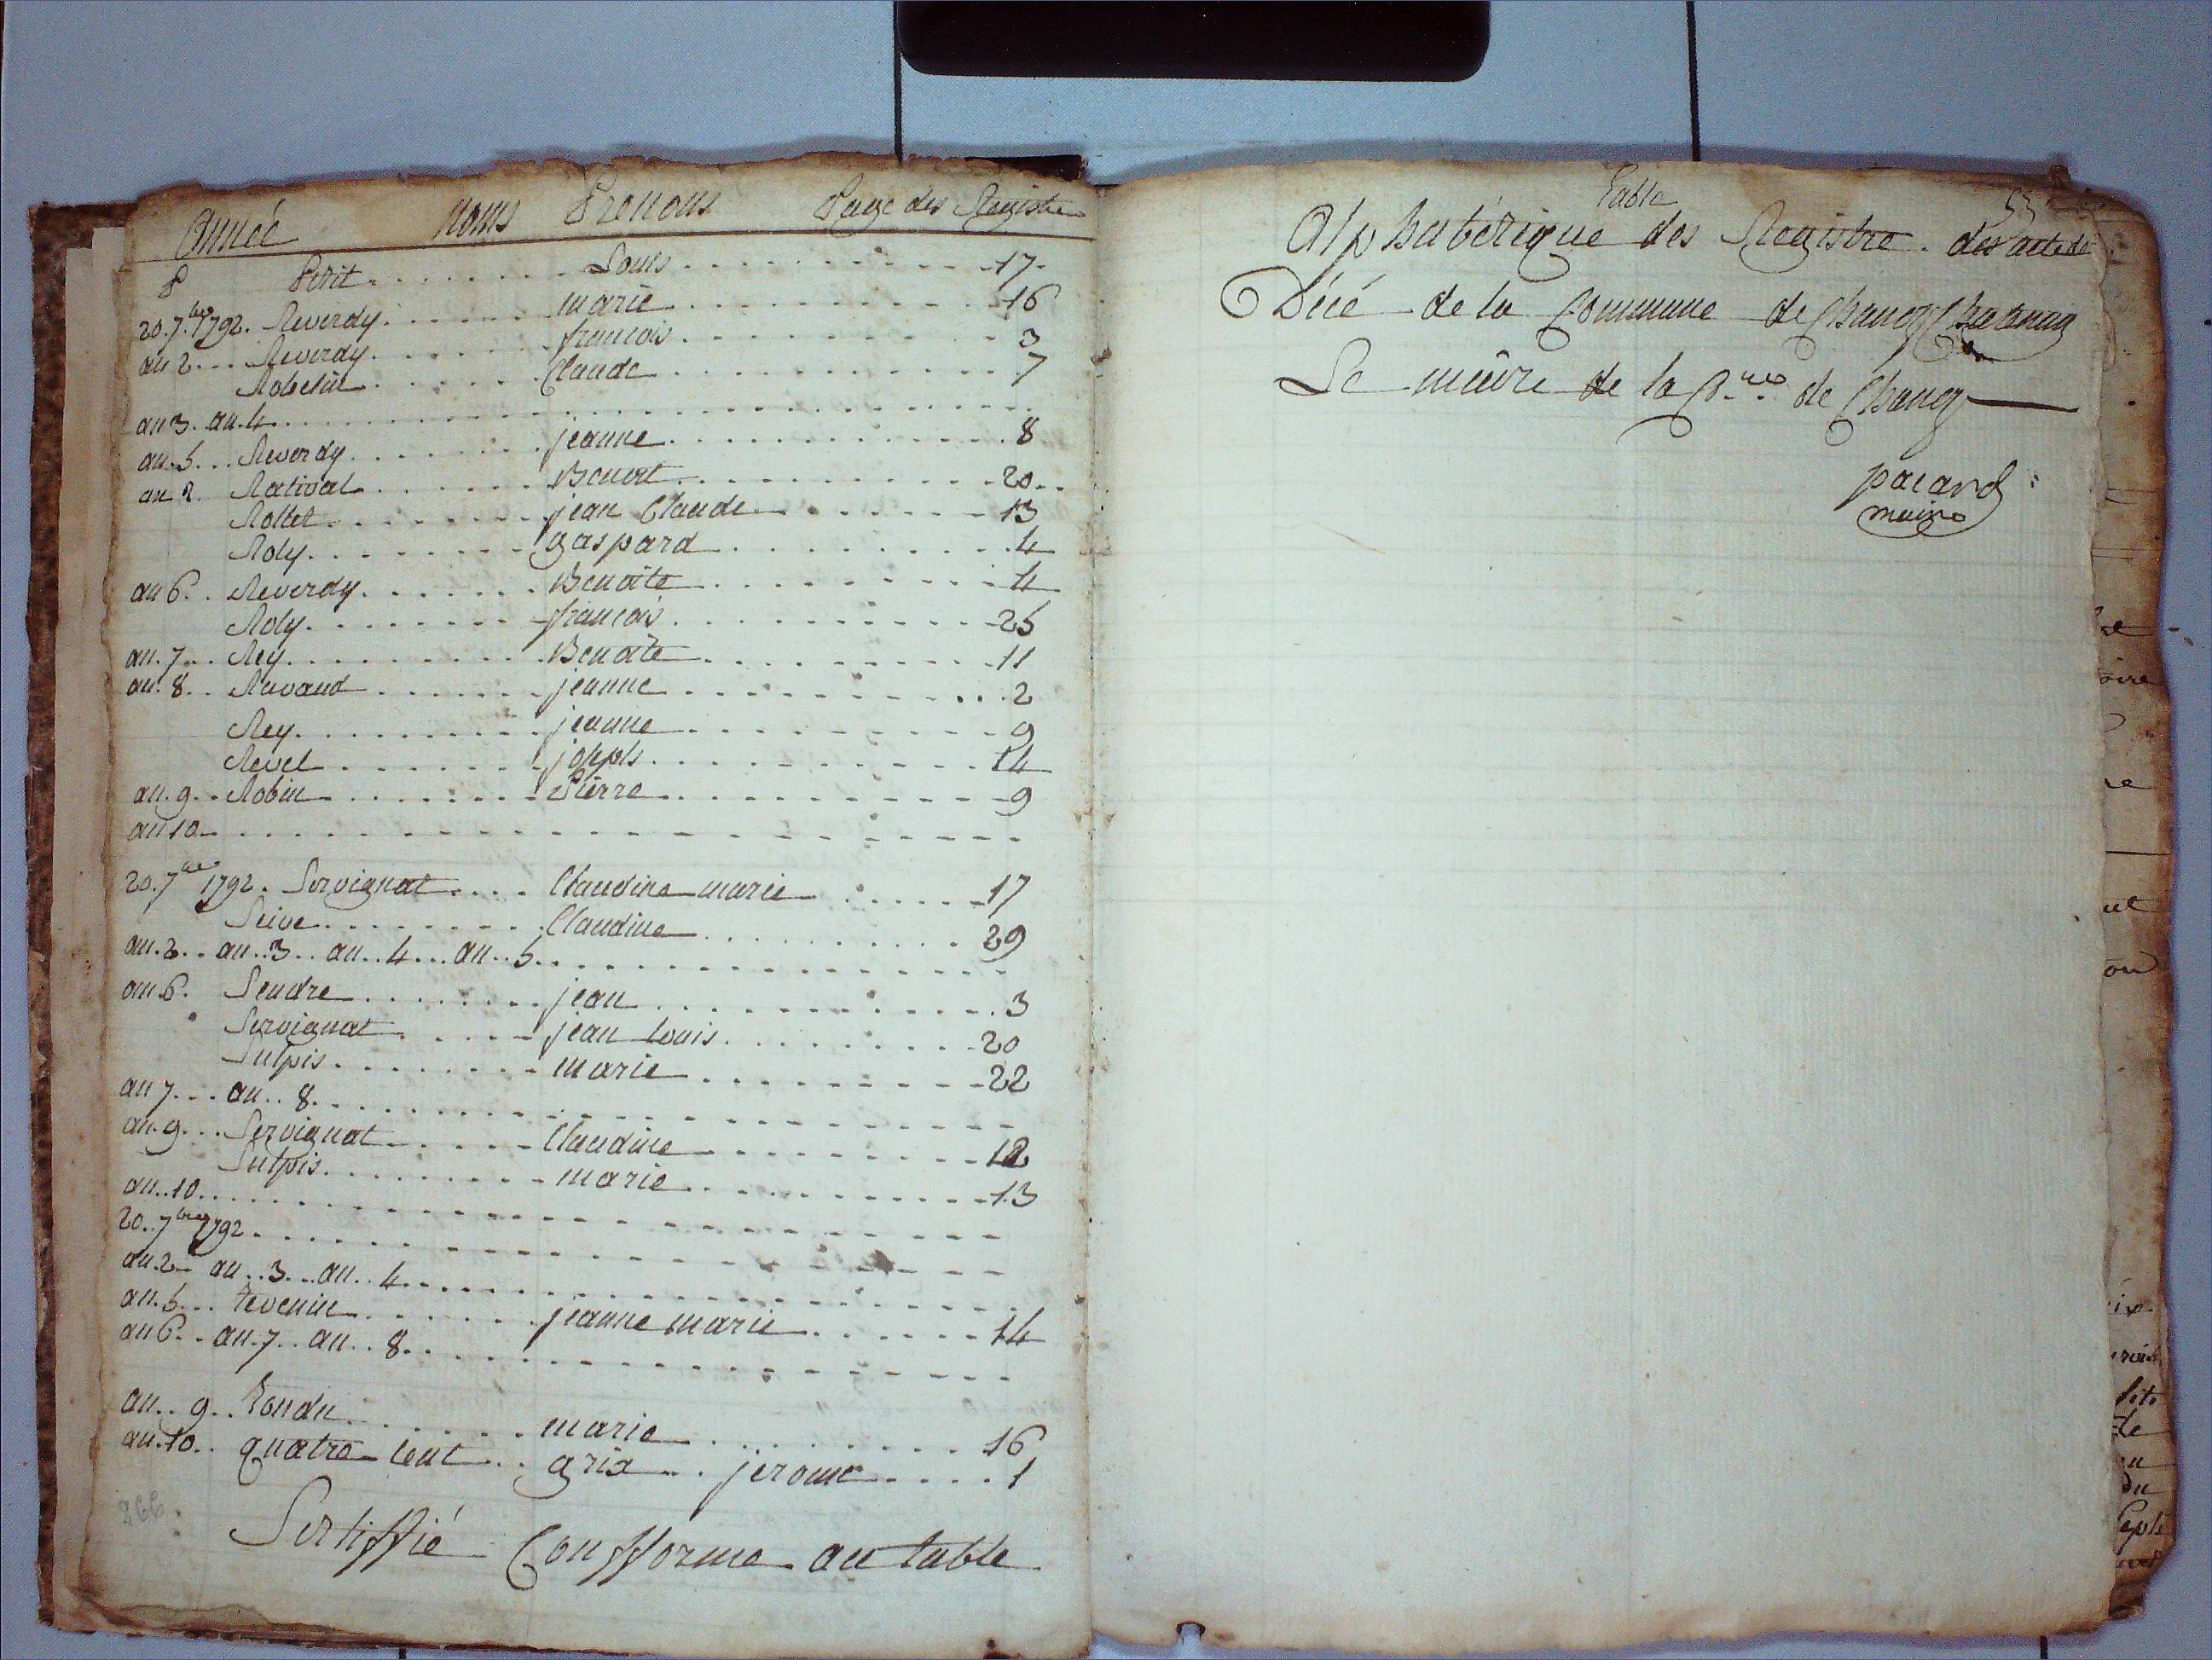 année noms Prenoms Page des Registre
8 Petit Louis 17
20.7.bre 1792. Reverdy marie 16
an 2 Reverdy francois 3
Robelin Claude 7
an 3. an. 4
an. 5 Reverdy jeanne 8
an 2. Rativat Benoit 20
Rollet jean Claude 13
Roly gaspard 4
an 6 Reverdy Benoite 4
Roly francois 25
an. 7 Rey Benoite 11
an. 8 Ravaud jeanne 2
Rey jeanne 9
Revel joseph 14
an. 9 Robin Pierre 9
an 10
20.7bre 1792. Servignat Claudine marie 17
Seive Claudine 29
an. 2 an 3 an 4 an 5
an 6. Sendre jean 3
Servignat jean louis 20
Sulpis marie 22
an 7 an 8
an. 9 Servignat Claudine 12
Sulpis marie 13
an. 10
20. 7bre 1792
an. 2 an 3 an 4
an. 5 tevenin jeanne marie 14
an 6 an. 7 an 8
an. 9 Tondu marie 16
an. 10 quatre cent grix jerome 1
Sertiffié Confforme au table
Table
53
Alphabétique des Registre des acte de
Décé de la Commune de Changy
Le maire de la de Changy
pacard
maire